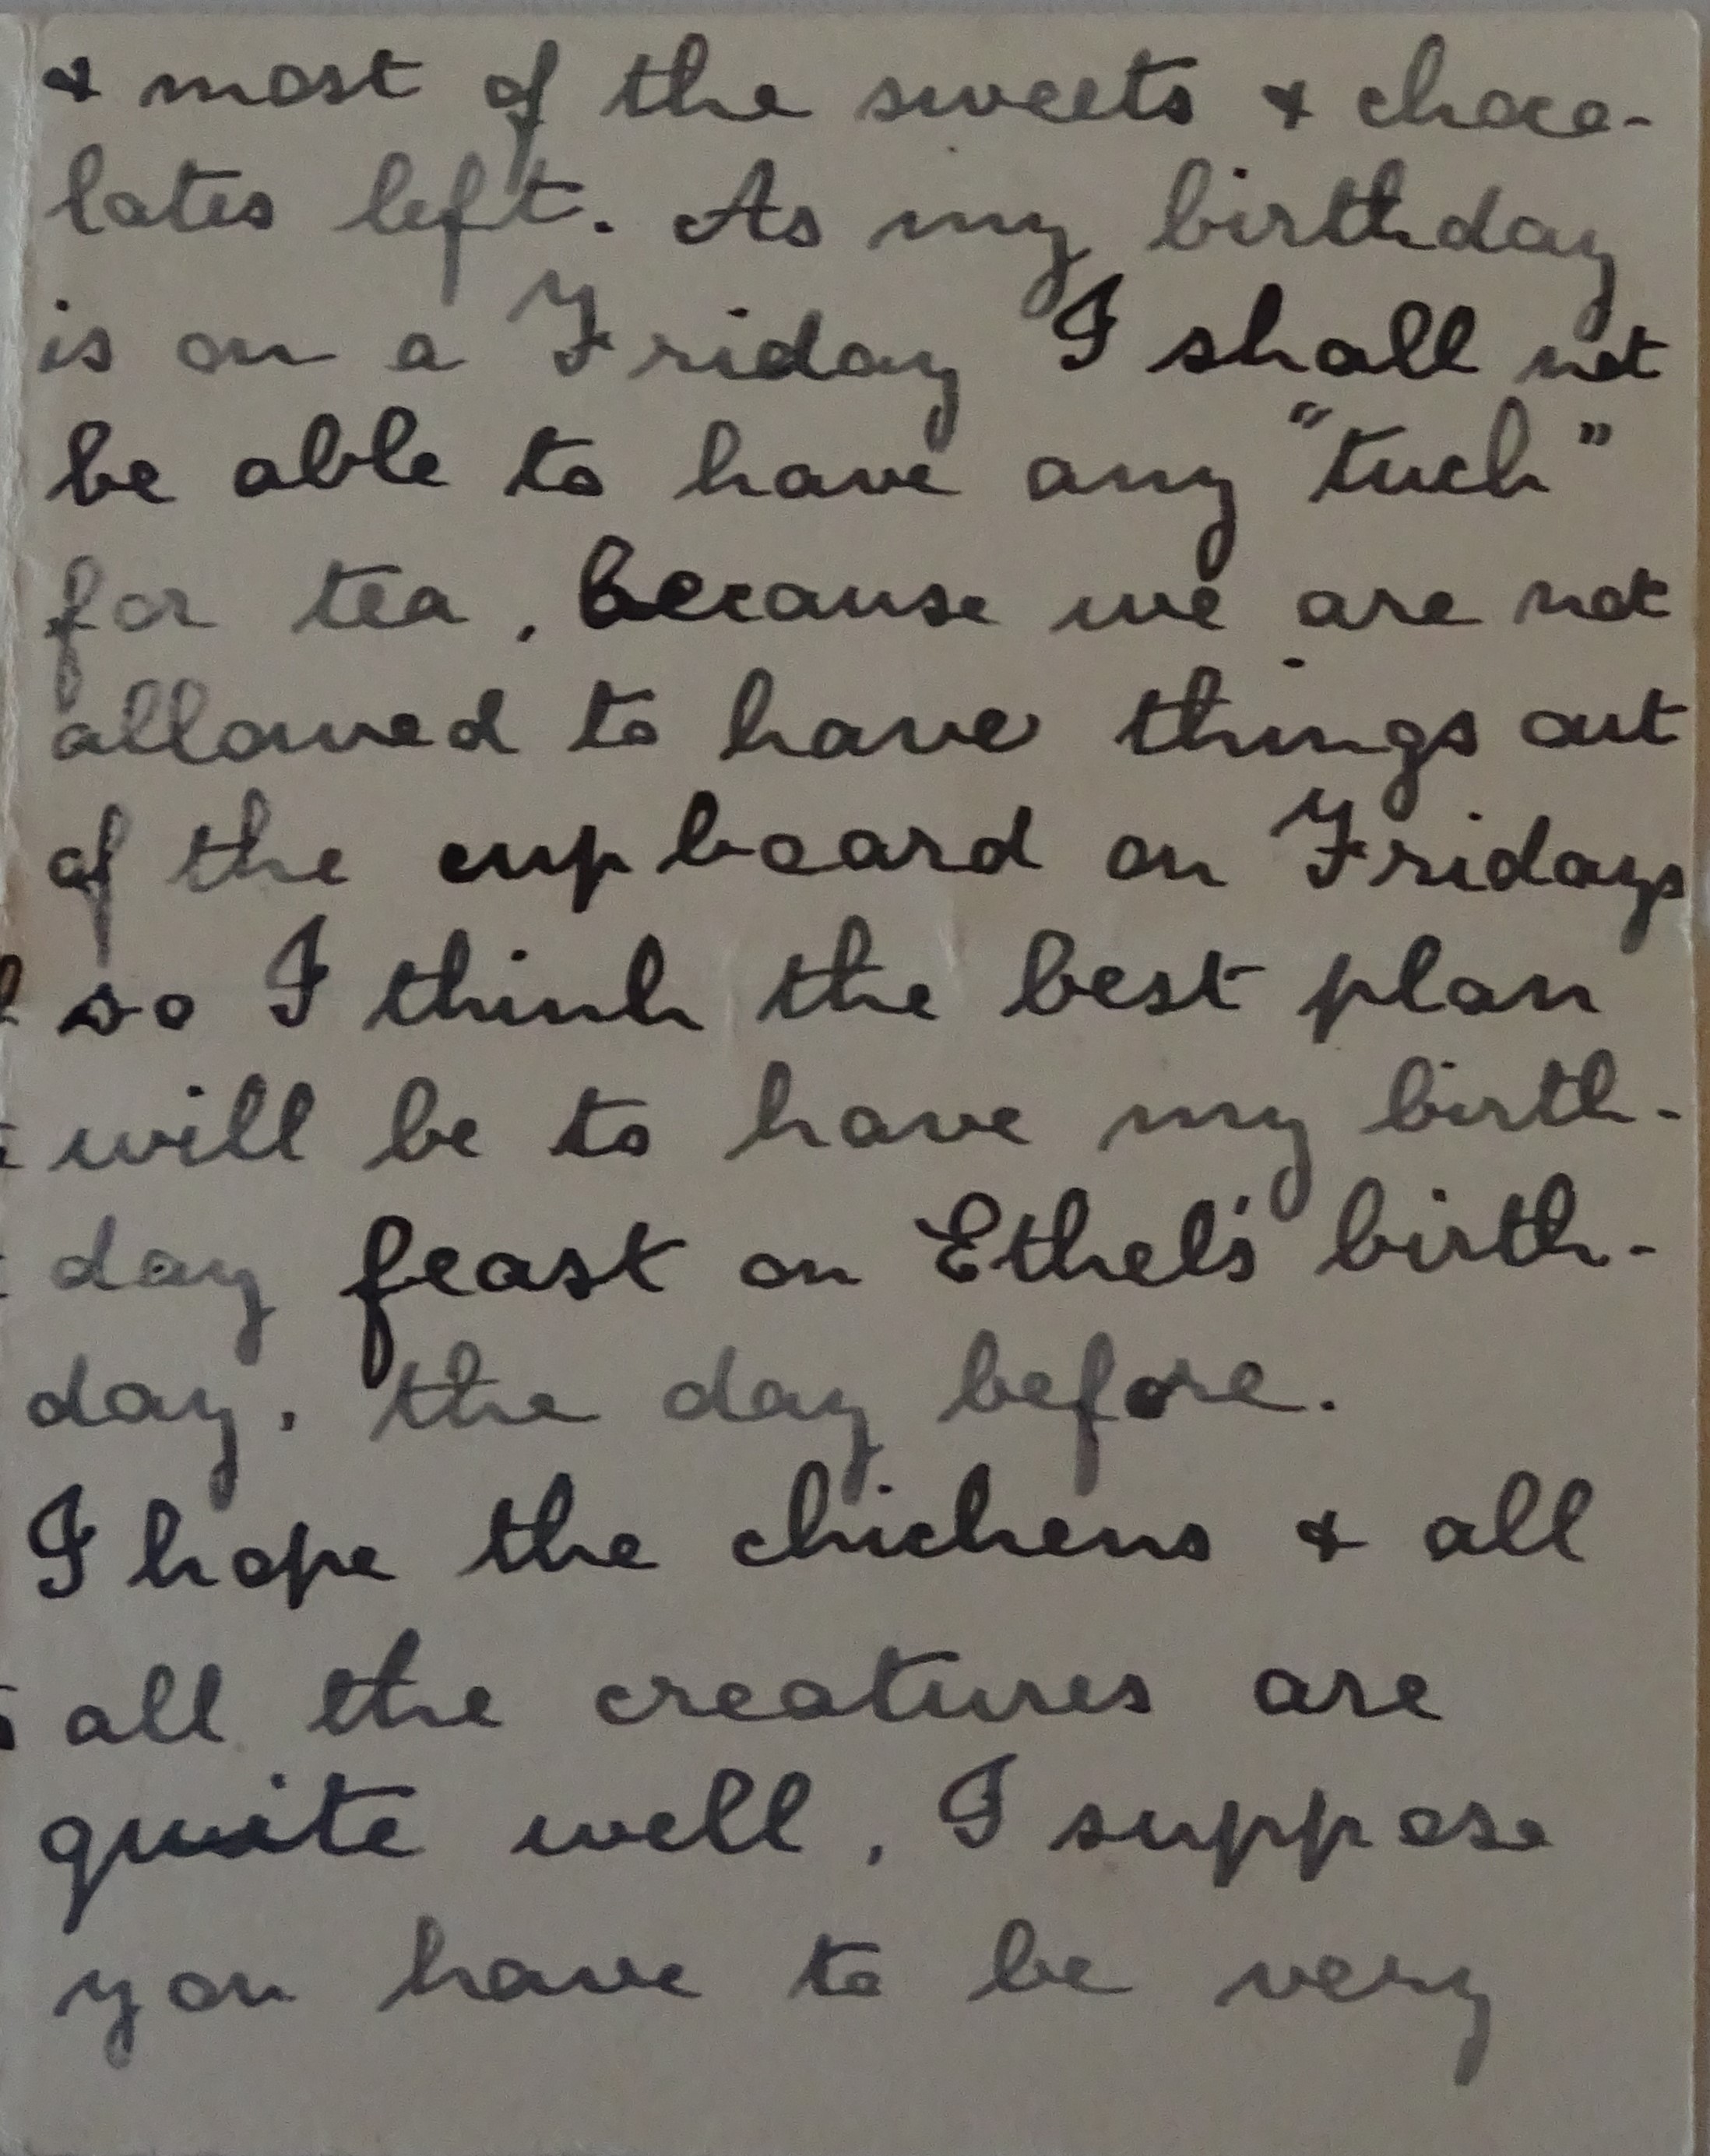 & most of the sweets & choco-
lates left. As my birthday
is on a Friday I shall not
be able to have any "tuck"
for tea, because we are not
allowed to have things out
of the cupboard on Fridays
so I think the best plan
will be to have my birth-
day feast on Ethel's birth-
day, the day before.
I hope the chickens & all
all the creatures are
quite well, I suppose
you have to be very